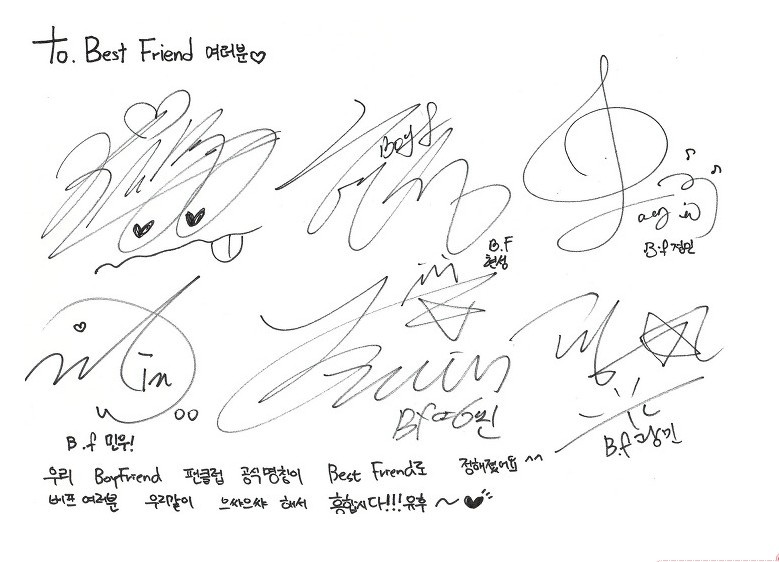 To. Best Friend 여러분♡
Boyf
B.F
현성
B.f 정민
in
B.f 민우!
B.f 광민
우리 Boyfriend 팬클럽 공식명칭이 Best Friend로 정해졌어요 ^^
버프여러분 우리같이 으쌰으쌰 해서 흥합시다!!! 유후~♥